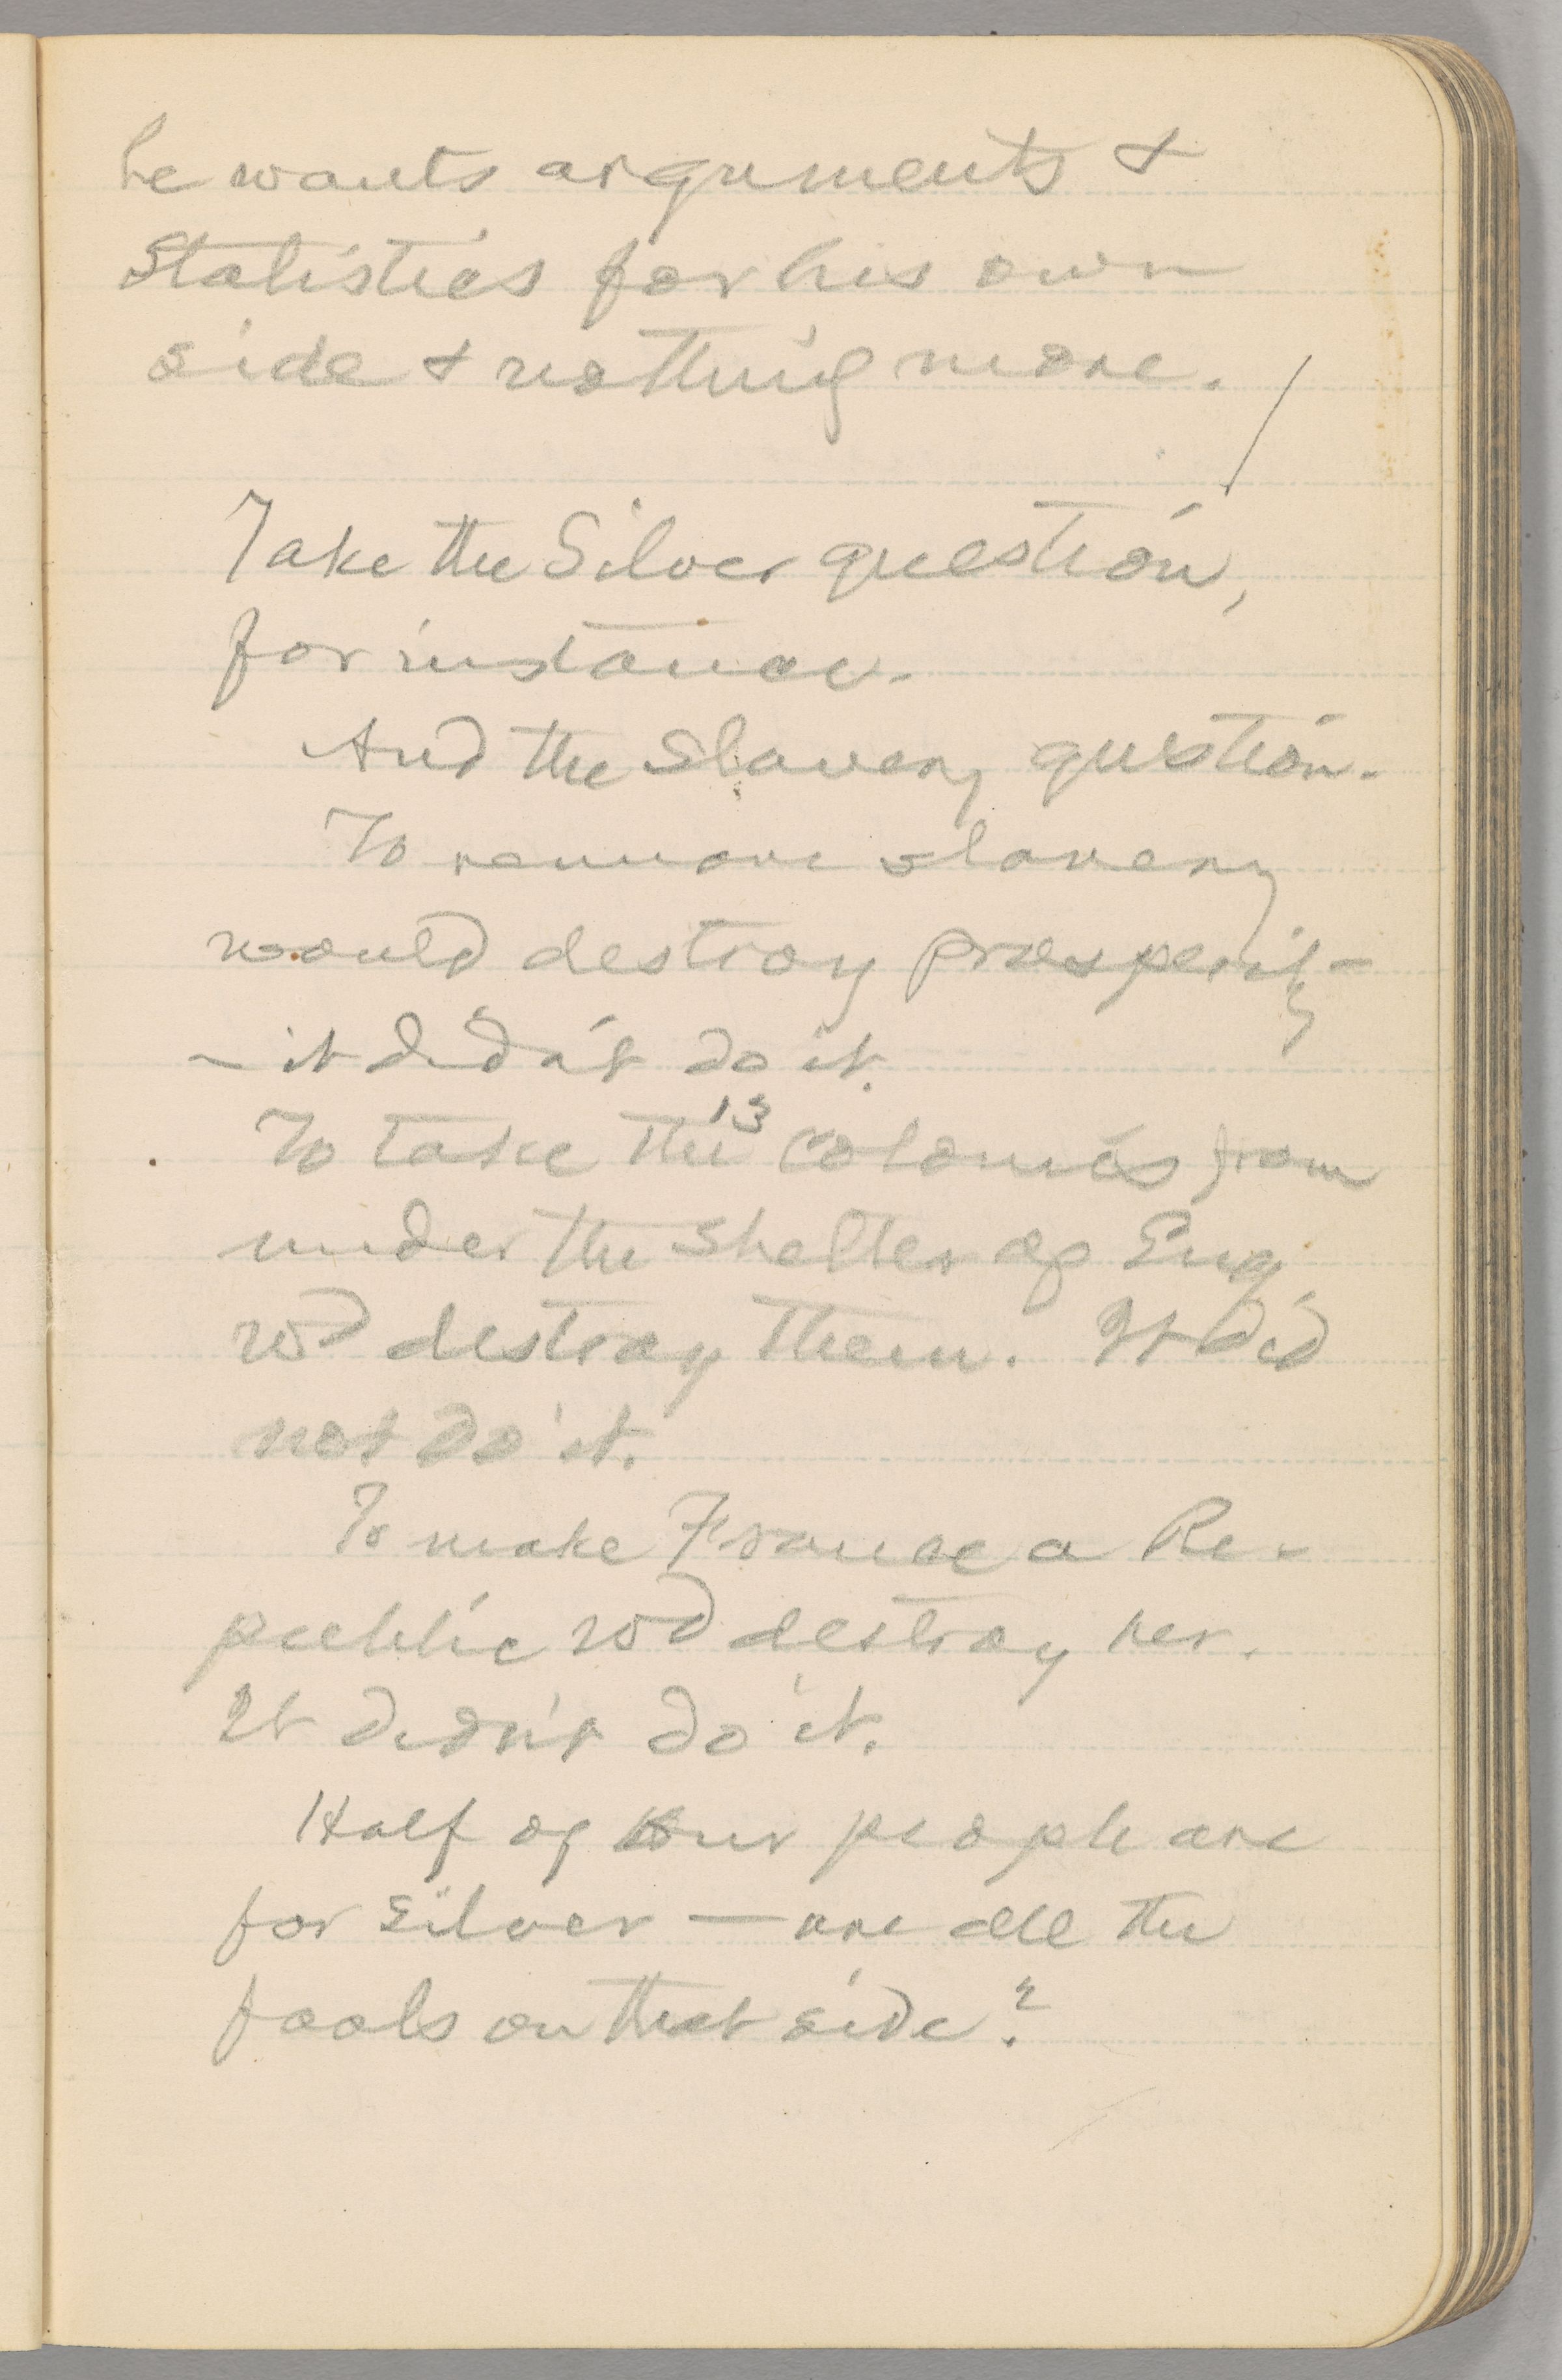 he wants arguments &
Statistics for his own
side & nothing more.
Take the Silver question,
for instance.
And the Slavery question.
To remove slavery
would destroy prosperity—
— it didn't do it.
To take the 13 colonies from
under the shelter of Eng
wd destroy them. It did
not do it.
To make France a Re-
public wd destroy her.
It didn't do it.
Half of our people are
for silver — are all the
fools on that side?